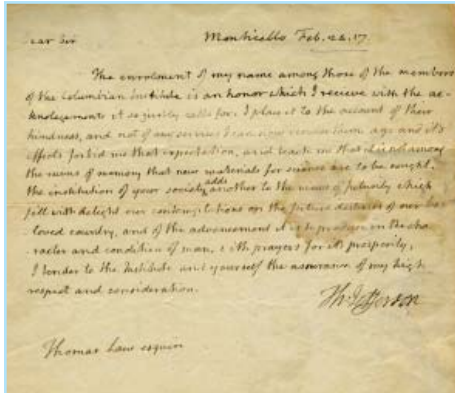 ear Sir Monticello Feb. 22. 17.
The enrolment of my name among those of the members
of the Columbian Institute is an honor which I recieve with the ac-
knolegements it so justly calls for. I place it to the account of their
kindness, and not of any services I can now render them. age and it's
effects forbid me that expectation, and teach me that it is not among
the ruins of memory that new materials for science are to be sought.
the institution of your society adds another to the views of futurity which
fill with delight our contemplations on the future destinies of our be-
loved country, and of the advancement it is to produce in the cha-
racter and condition of man. with prayers for it's prosperity,
I tender to the Institute and yourself the assurance of my high
respect and consideration.
Th: Jefferson
Thomas Law esquire